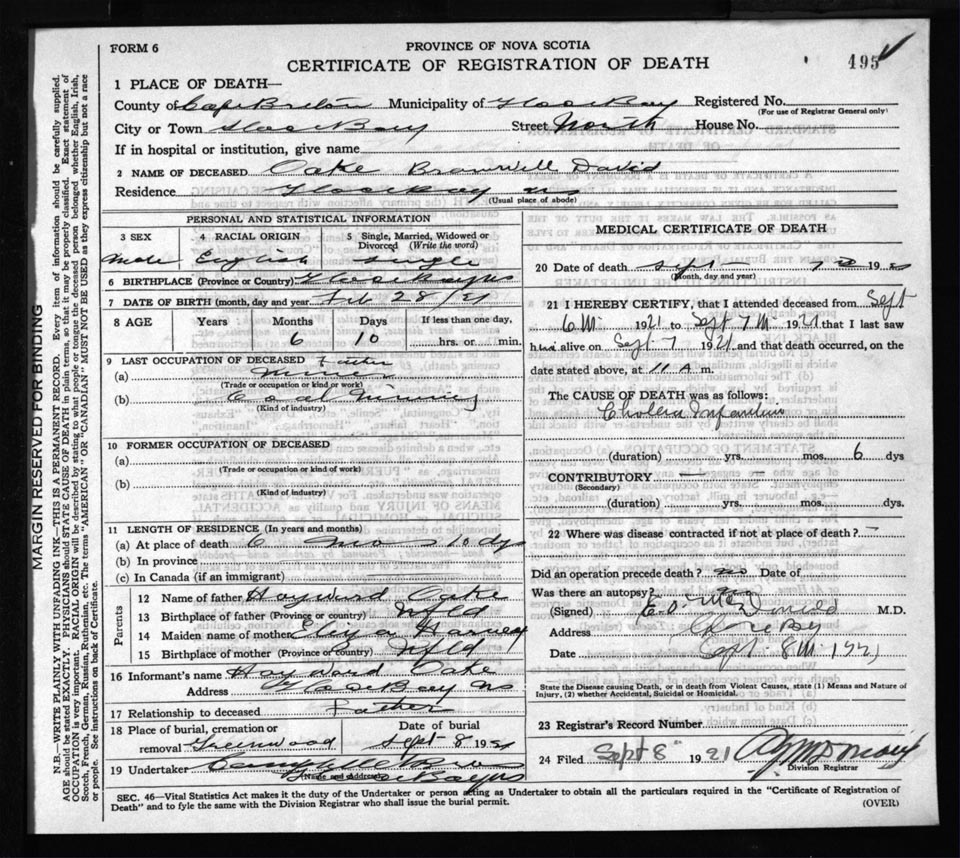 FORM 6
PROVINCE OF NOVA SCOTIA
CERTIFICATE OF REGISTRATION OF DEATH
495
1 PLACE OF DEATH—
County of Cape Breton Municipality of Glace Bay Registered No.
(For use of Registrar General only)
City or Town Glace Bay Street North House No.
If in hospital or institution, give name
2 NAME OF DECEASED Oake Bramwell David
Residence Glace Bay NS
(Usual place of abode)
PERSONAL AND STATISTICAL INFORMATION
3 SEX 4 RACIAL ORIGIN 5 Single, Married, Widowed or Divorced (Write the word)
Male English Single
6 BIRTHPLACE (Province or Country) Glace Bay NS
7 DATE OF BIRTH (month, day and year Feb 28/21
8 AGE Years Months Days If less than one day,
6 10 hrs. or min.
9 LAST OCCUPATION OF DECEASED Father
(a) Miner
(Trade or occupation or kind of work)
(b) Coal Mining
(Kind of industry)
10 FORMER OCCUPATION OF DECEASED
(a)
(Trade or occupation or kind of work)
(b)
(Kind of industry)
11 LENGTH OF RESIDENCE (In years and months)
(a) At place of death 6 mos 10 dys
(b) In province
(c) In Canada (if an immigrant)
Parents
12 Name of father Hayward Oake
13 Birthplace of father (Province or country) Nfld
14 Maiden name of mother
15 Birthplace of mother (Province or country) Nfld
16 Informant's name Hayward Oake
Address Glace Bay NS
17 Relationship to deceased Father
18 Place of burial, cremation or removal Greenwood
Date of burial Sept 8 1921
19 Undertaker
(Name and address) Glace Bay NS
MEDICAL CERTIFICATE OF DEATH
20 Date of death Sept 7 1921
(Month, day and year)
21 I HEREBY CERTIFY, that I attended deceased from Sept
6th 1921 to Sept 7th 1921 that I last saw
him alive on Sept 7 1921 and that death occurred, on the
date stated above, at 11 A m.
The CAUSE OF DEATH was as follows:
Cholera Infantum
(duration) yrs. mos. 6 dys
CONTRIBUTORY — —
(Secondary)
(duration) yrs. mos. dys.
22 Where was disease contracted if not at place of death? —
Did an operation precede death? no Date of
Was there an autopsy? no
(Signed) M.D.
Address Glace Bay
Date Sept. 8th 1921
State the Disease causing Death, or in death from Violent Causes, state (1) Means and Nature of Injury, (2) whether Accidental, Suicidal or Homicidal.
23 Registrar's Record Number
24 Filed Sept 8 1921
Division Registrar
SEC. 46—Vital Statistics Act makes it the duty of the Undertaker or person acting as Undertaker to obtain all the particulars required in the "Certificate of Registration of Death" and to fyle the same with the Division Registrar who shall issue the burial permit.
(OVER)
MARGIN RESERVED FOR BINDING
N.B.—WRITE PLAINLY WITH UNFADING INK—THIS IS A PERMANENT RECORD. Every item of information should be carefully supplied.
AGE should be stated EXACTLY. PHYSICIANS should STATE CAUSE OF DEATH in plain terms, so that it may be properly classified. Exact statement of
OCCUPATION is very important. RACIAL ORIGIN will be described by stating to what people or tongue the deceased person belonged whether English, Irish,
Scotch, French, German, Russian, Ruthenian, etc. The terms "AMERICAN" OR "CANADIAN" MUST NOT BE USED as they express citizenship but not a race
or people. See instructions on back of Certificate.